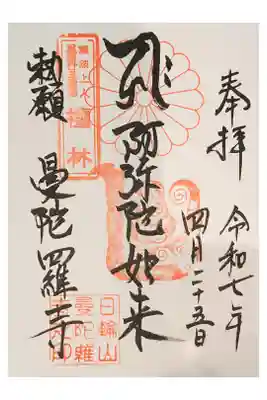 奉拝
令和七年
四月二十五日
阿弥陀如来
勅願
曼陀羅寺
檀林
日輪山
曼陀羅